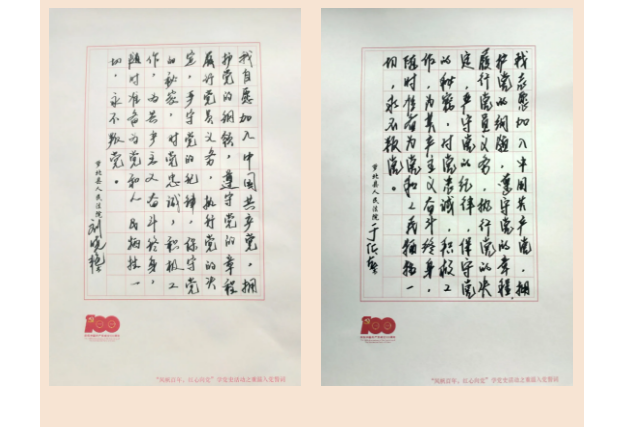 我自愿加入中国共产党，拥
护党的纲领，遵守党的章程
履行党员义务，执行党的决
定，严守党的纪律，保守党
的秘密，对党忠诚，积极工
作，为共产主义奋斗终身，
随时准备为党和人民牺牲一
切，永不叛党。
萝北县人民法院 刘晓艳
100
百年，红心向党"学党史活动之重温入党誓词
我志愿加入中国共产党，拥
护党的纲领，遵守党的章程，
履行党员义务，执行党的决
定，严守党的纪律，保守党
的秘密，对党忠诚，积极工
作，为共产主义奋斗终身，
随时准备为党和人民牺牲一
切，永不叛党。
萝北县人民法院 于
100
百年，红心向党"学党史活动之重温入党誓词